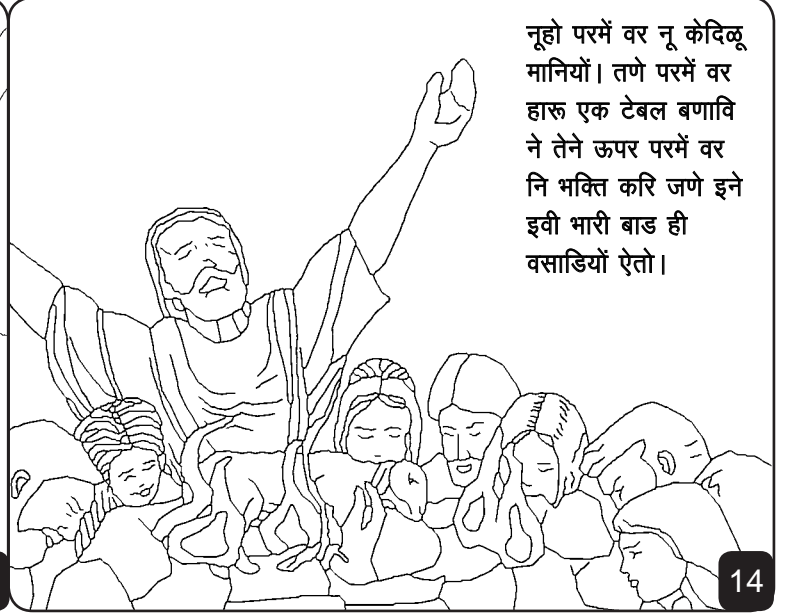 नूहो परमें वर नू केदिळू
मानियों। तणे परमें वर
हारू एक टेबल बणावि
ने तेने ऊपर परमें वर
नि भक्ति करि जणे इने
इवी भारी बाड ही
वसाडियों ऐतो।
14